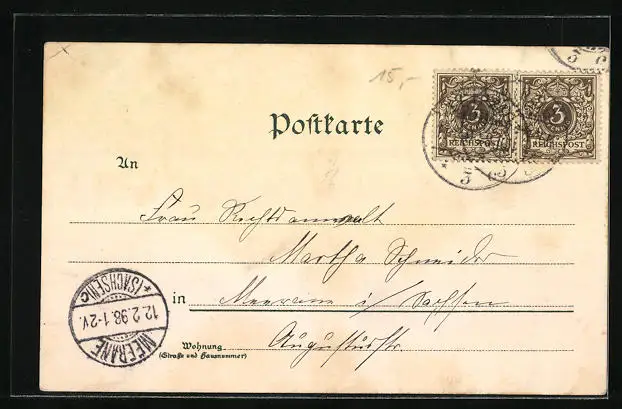 15,-
3 3
REICHSPOST REICHSPOST
Postkarte
An
Frau Rechtsanwalt
Martha Schneider
in Meerane i/ Sachsen
Wohnung
(Straße und Hausnummer)
Augustusstr
MEERANE
*(SACHSEN)c
12.2.98.1-2V.